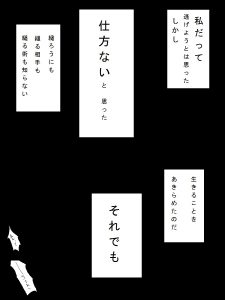 私だって
逃げようとは思った
しかし
仕方ない
と 思った
縋ろうにも
縋る相手も
縋る術も知らない
生きることを
あきらめたのだ
それでも